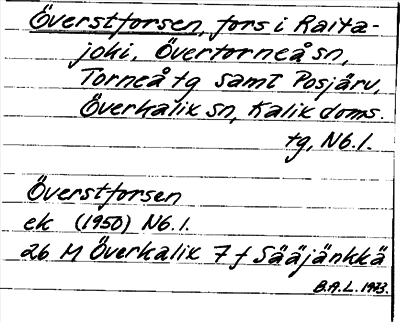 Överstforsen, fors i Raita-
joki, Övertorneå sn,
Torneå tg samt Posjärv,
Överkalix sn, Kalix doms.
tg, Nb. l.
Överstforsen
ek (1950) Nb. l.
26 M Överkalix 7 f Sääjänkkä
B.A.L. 1973.